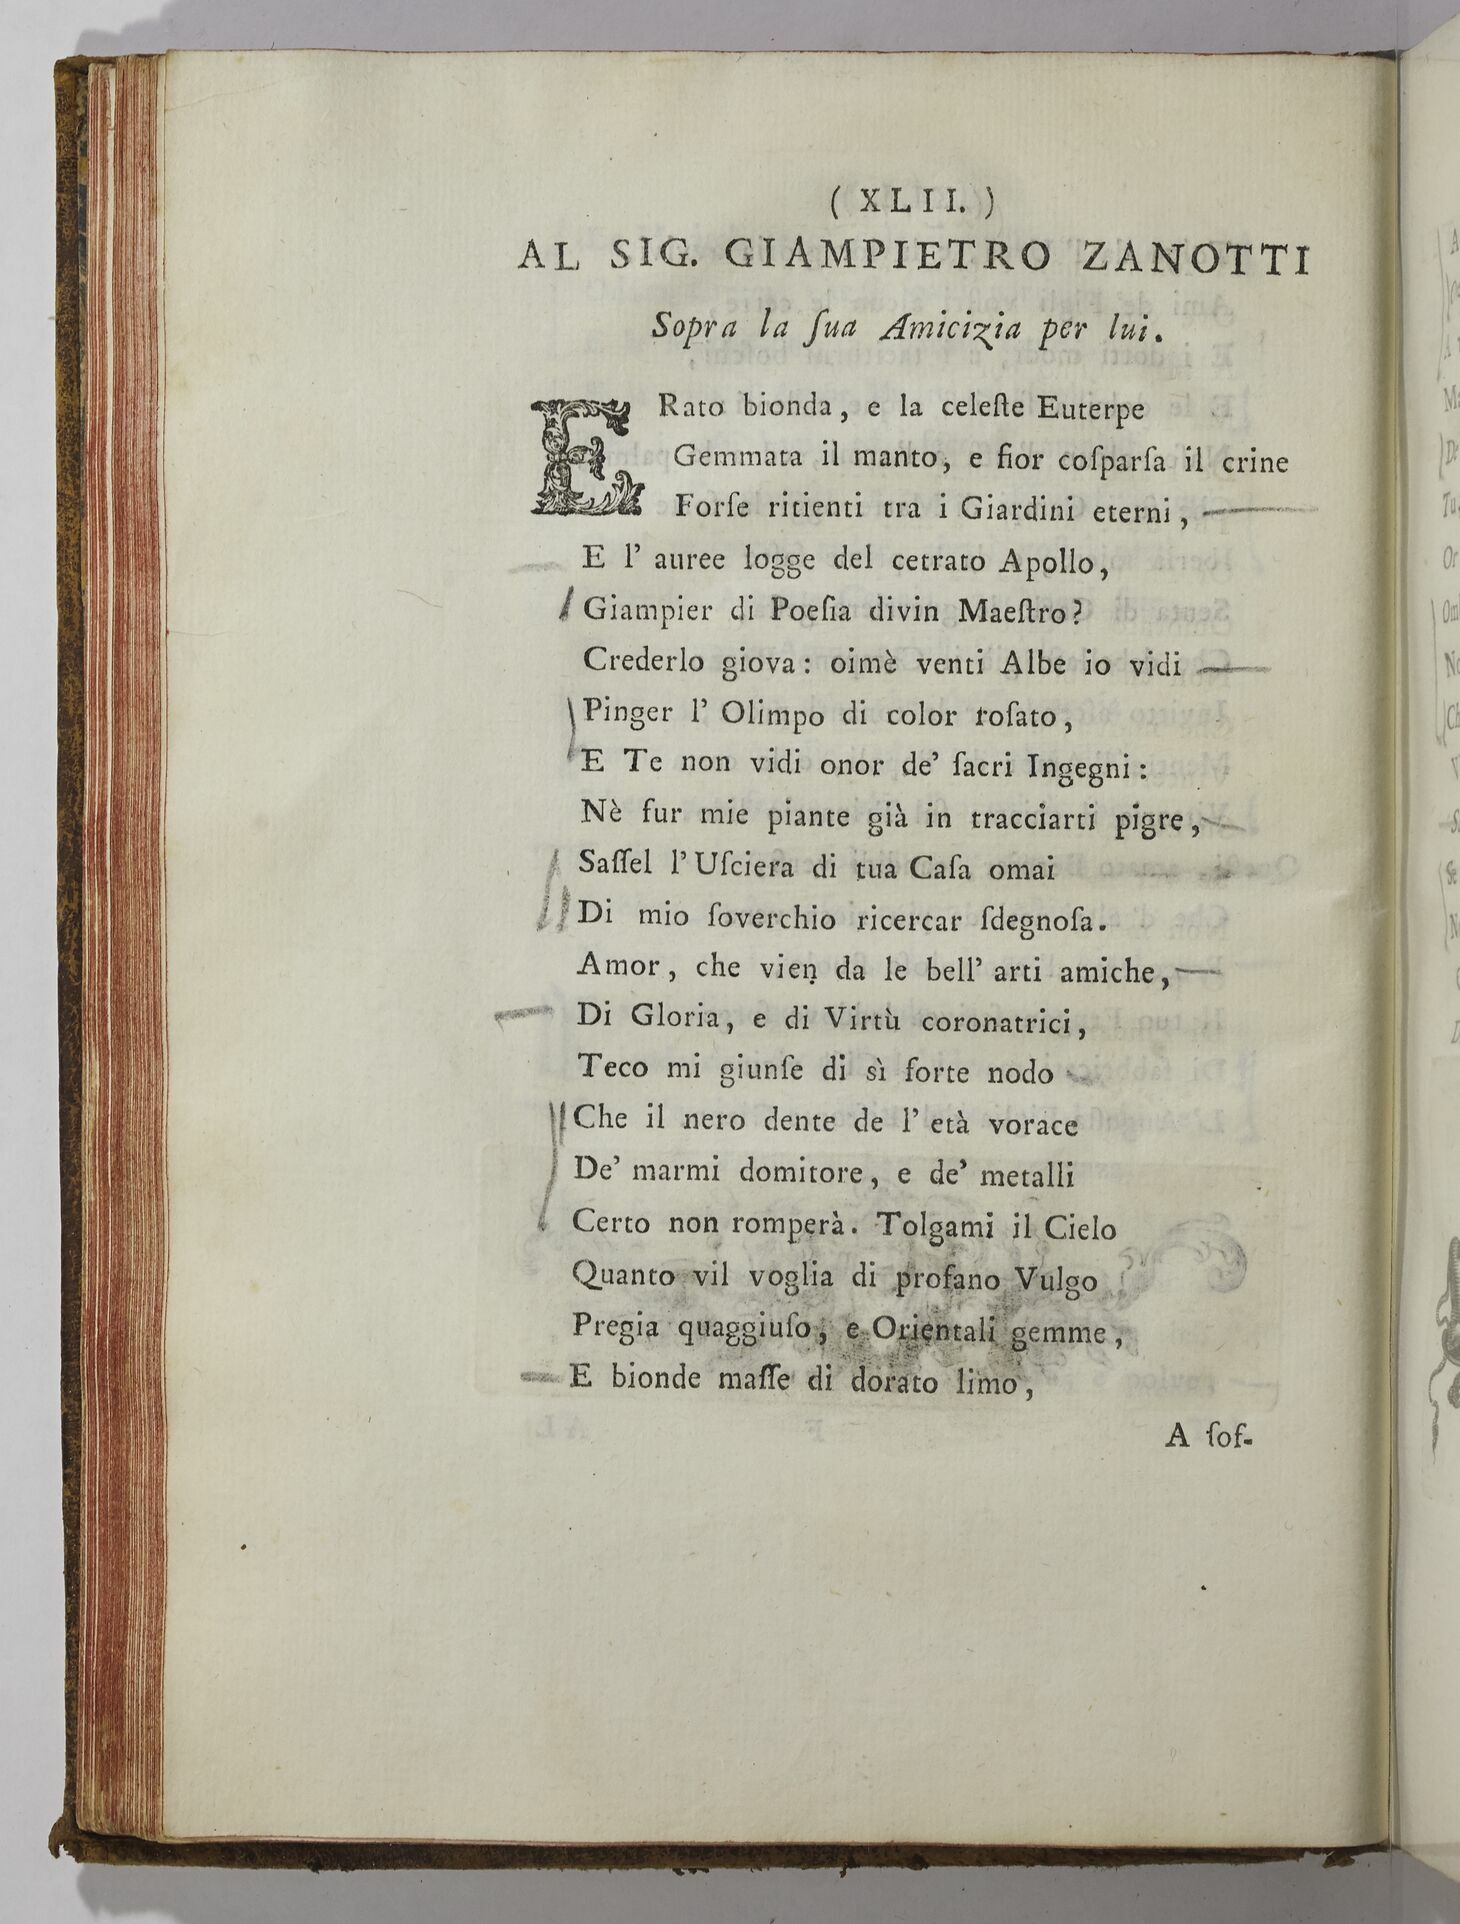 ( XLII. )
AL SIG. GIAMPIETRO ZANOTTI
Sopra la ſua Amicizia per lui.
ERato bionda, e la celeſte Euterpe
Gemmata il manto, e fior coſparſa il crine
Forſe ritienti tra i Giardini eterni,
E l' auree logge del cetrato Apollo,
Giampier di Poeſia divin Maeſtro?
Crederlo giova: oimè venti Albe io vidi
Pinger l' Olimpo di color roſato,
E Te non vidi onor de' ſacri Ingegni:
Nè fur mie piante già in tracciarti pigre,
Saſſel l' Uſciera di tua Caſa omai
Di mio ſoverchio ricercar ſdegnoſa.
Amor, che vien da le bell' arti amiche,
Di Gloria, e di Virtù coronatrici,
Teco mi giunſe di sì forte nodo
Che il nero dente de l' età vorace
De' marmi domitore, e de' metalli
Certo non romperà. Tolgami il Cielo
Quanto vil voglia di profano Vulgo
Pregia quaggiuſo, e Orientali gemme,
E bionde maſſe di dorato limo,
A ſof-